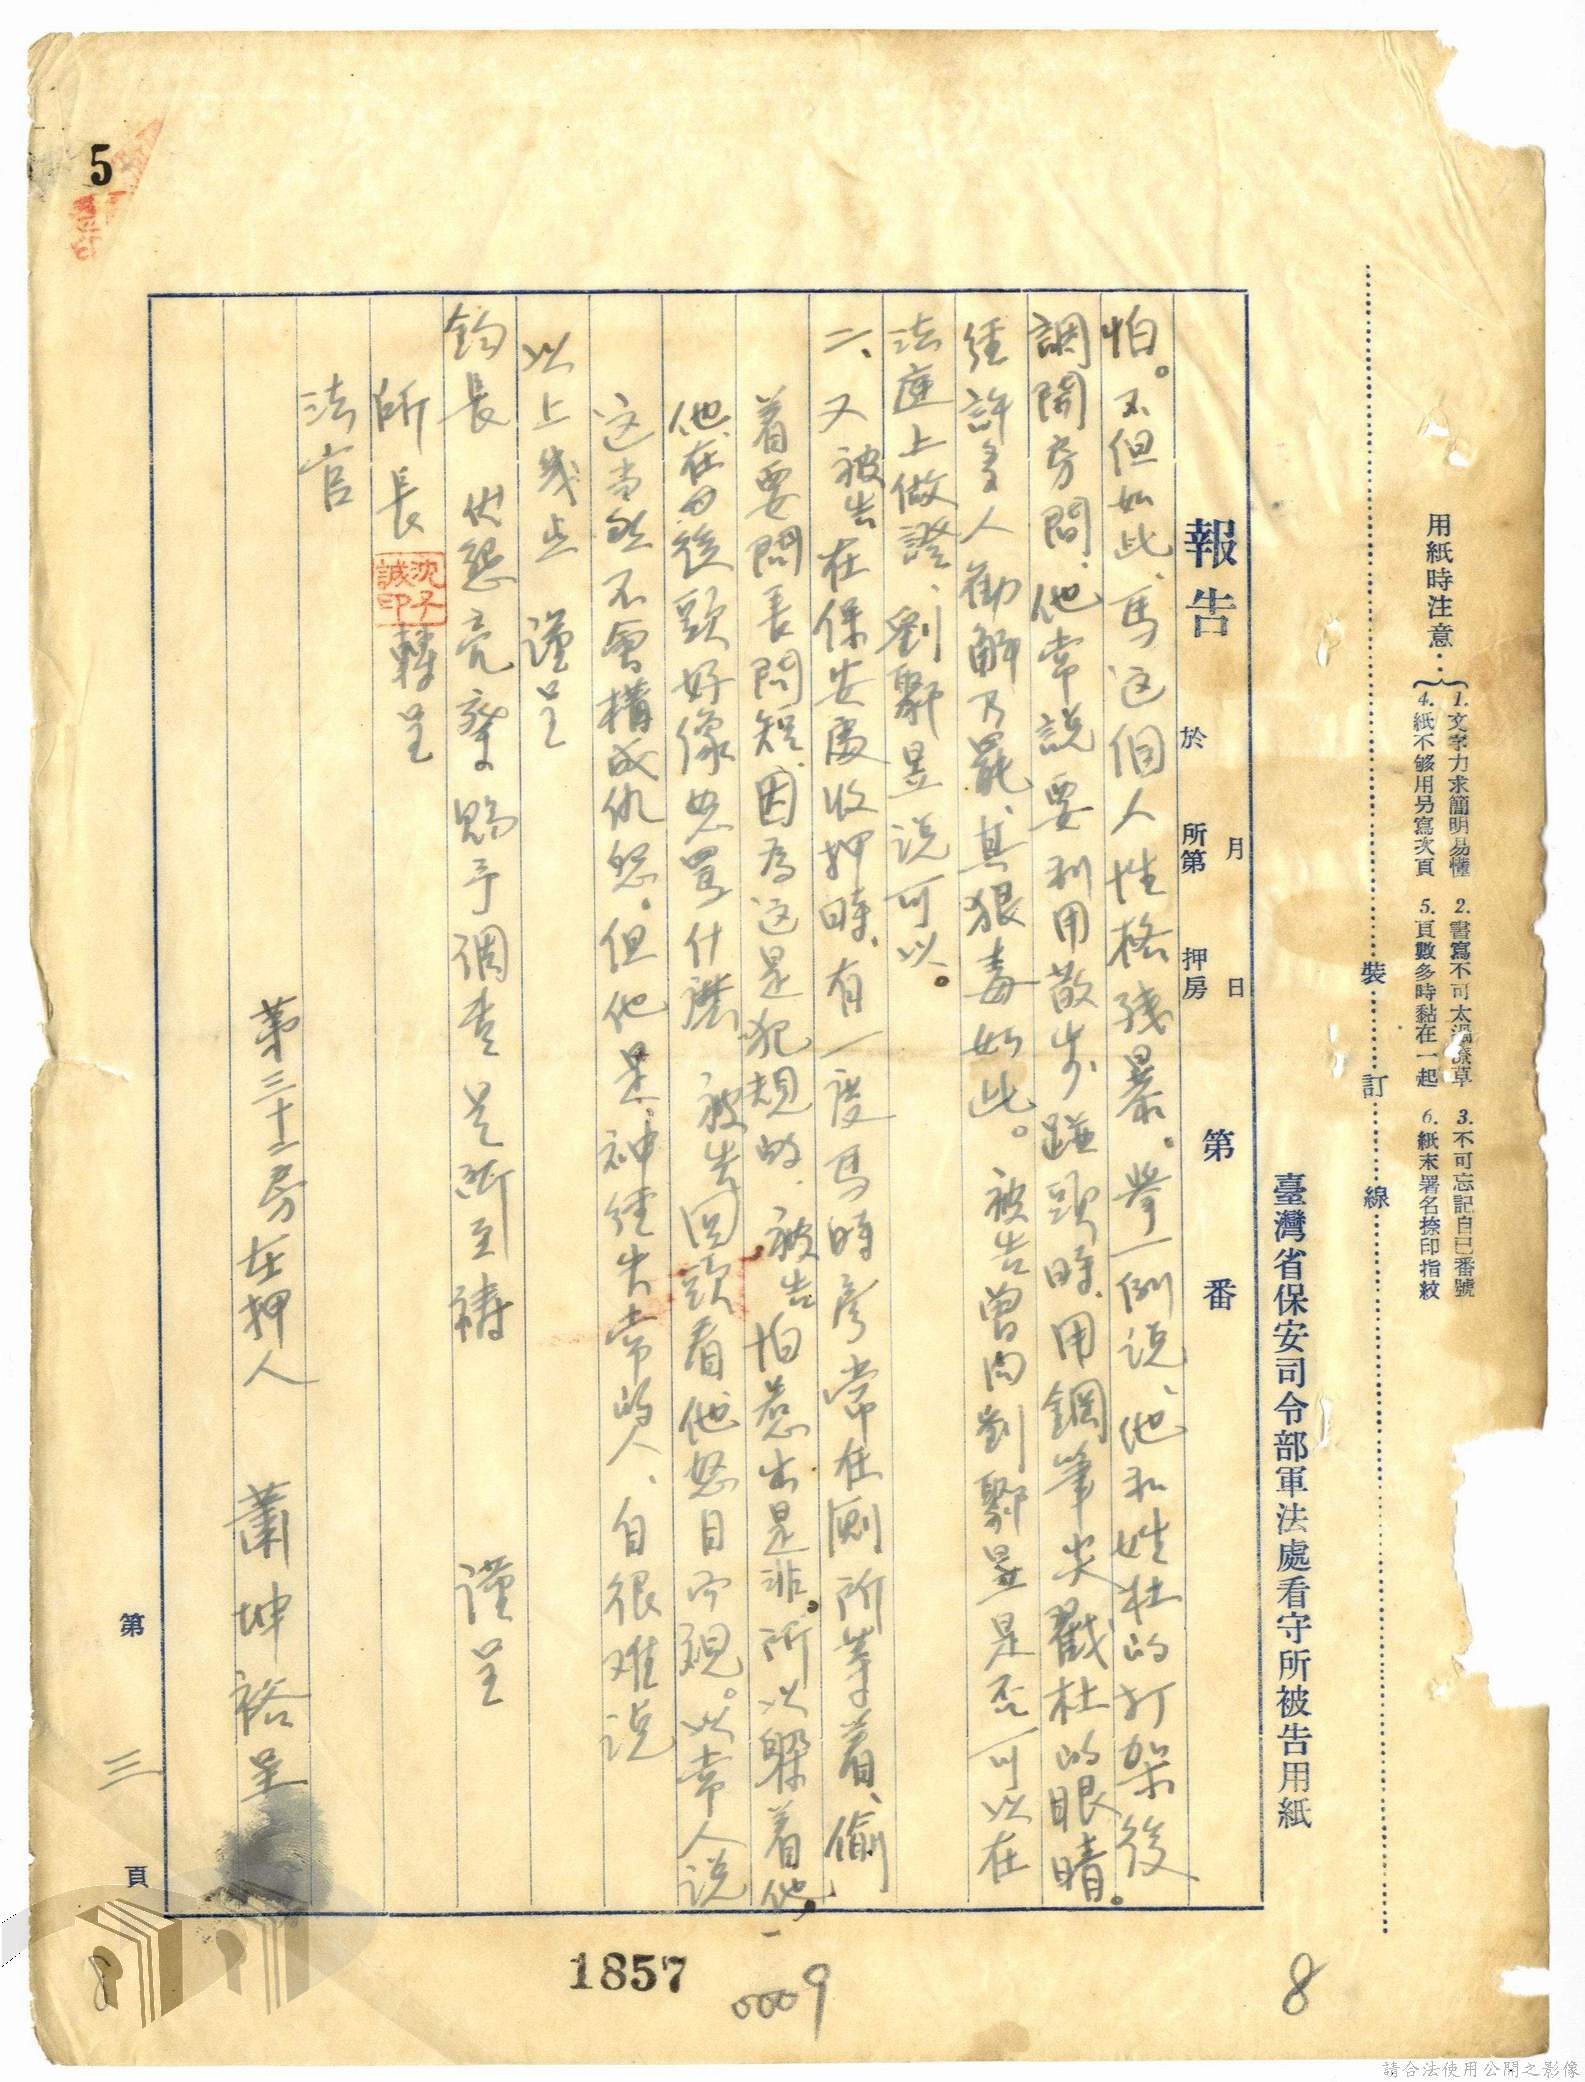 用紙時注意…
1. 文字力求簡明易懂 2. 書寫不可太潦草 3. 不可忘記自己番號
4. 紙不够用另寫次頁 5. 頁數多時黏在一起 6. 紙末署名捺印指紋
裝 訂 線
臺灣省保安司令部軍法處看守所被告用紙
第 番
月 日
報告 於 所第 押房
怕。不但如此、馬這個人性格殘暴。舉一例说、他和姓杜的打架後
調開房間、他常說要利用散步 頭時、用鋼筆尖戳杜的眼睛。
經許多人勸解乃罷、其狠毒如此。被告曾向劉 昱是否可以在
法庭上做證、劉 昱说可以。
二、又被告在保安處收押時、有一度馬時常在厠所等着、偷
着要問長問短、因為这是犯規的、被告怕惹出是非。所以躲着他。
他在 後頭好像怒罵什麽 被告回頭看他、他怒目而視。以常人说
这当然不會構成仇怨。但他是神經失常的人、自很难说
以上幾点 謹呈
鈞長 伏懇亮察 賜予調查 是所至禱 謹呈
所長 沈子誠印 轉呈
法官
第三十二房在押人 蕭坤裕呈
第 三 頁
5
1857
0009
8
8
請合法使用公開之影像